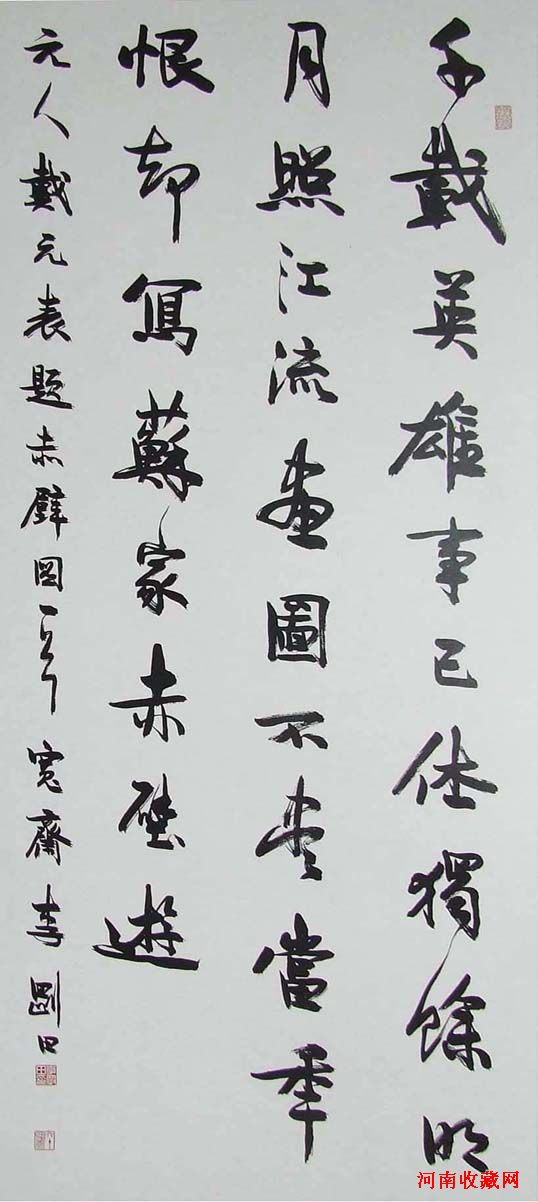 千載英雄事已休獨餘明
月照江流畫圖不盡當年
恨却寫蘇家赤壁遊
元人戴元表題赤壁圖一首 寬齋李剛田
河南收藏网